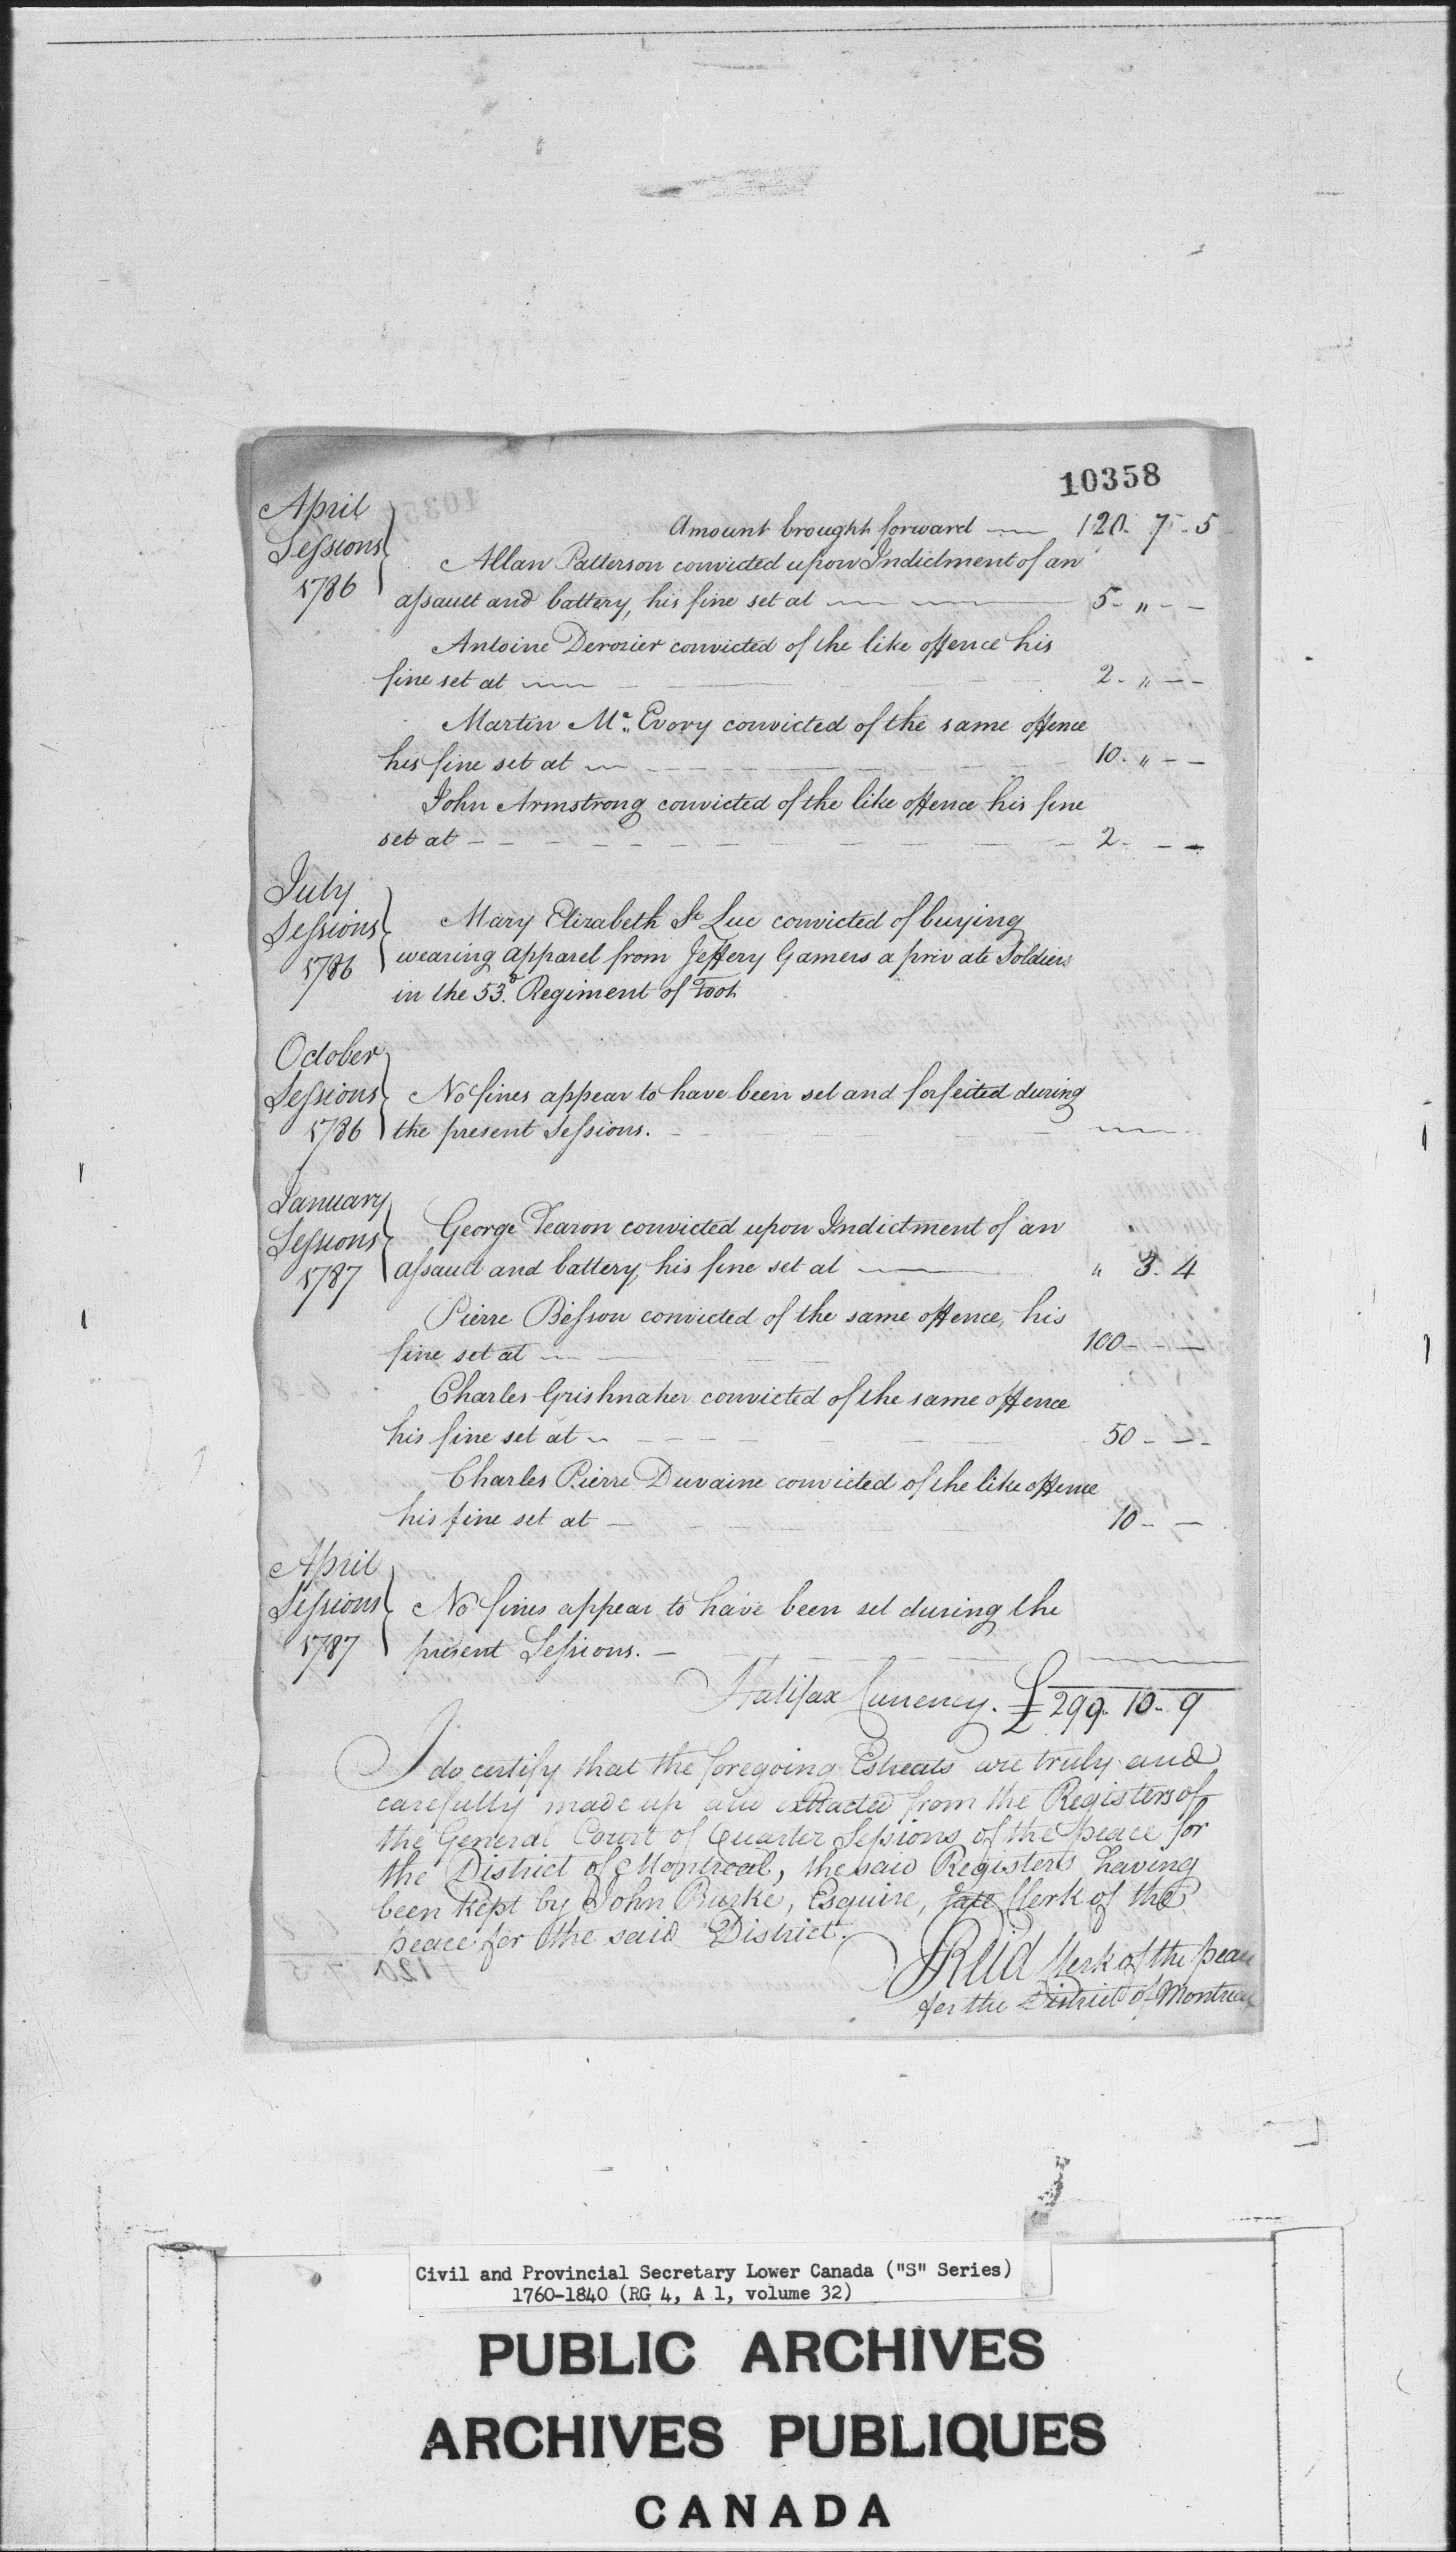 10358
Amount brought forward — 120. 7. 5
April
Sessions
1786
Allan Patterson convicted upon Indictment of an
assault and battery, his fine set at — 5 - " - -
Antoine Derosier convicted of the like offence his
fine set at — 2 - " - -
Martin Mc. Evory convicted of the same offence
his fine set at — 10 - " - -
John Armstrong convicted of the like offence his fine
set at - - - 2 - - -
July
Sessions
1786
Mary Elizabeth St Luc convicted of buying
wearing apparel from Jeffery Gamers a private Soldier
in the 53d. Regiment of Foot
October
Sessions
1786
No fines appear to have been set and forfeited during
the present Sessions. -
January
Sessions
1787
George Fearon convicted upon Indictment of an
assault and battery, his fine set at — " 3. 4
Pierre Besson convicted of the same offence, his
fine set at — 100 - - -
Charles Grishnaher convicted of the same offence
his fine set at - 50 - - -
Charles Pierre Duvaine convicted of the like offence
his fine set at - 10 - -
April
Sessions
1787
No fines appear to have been set during the
present Sessions. -
Halifax Currency. £299. 10. 9
I do certify that the foregoing Estreats are truly and
carefully made up and extracted from the Registers of
the General Court of Quarter Sessions of the peace for
the District of Montreal, the said Registers having
been kept by John Burke, Esquire, late Clerk of the
peace for the said District.
J Reid Clerk of the peace
for the District of Montreal
Civil and Provincial Secretary Lower Canada ("S" Series)
1760-1840 (RG 4, A 1, volume 32)
PUBLIC ARCHIVES
ARCHIVES PUBLIQUES
CANADA